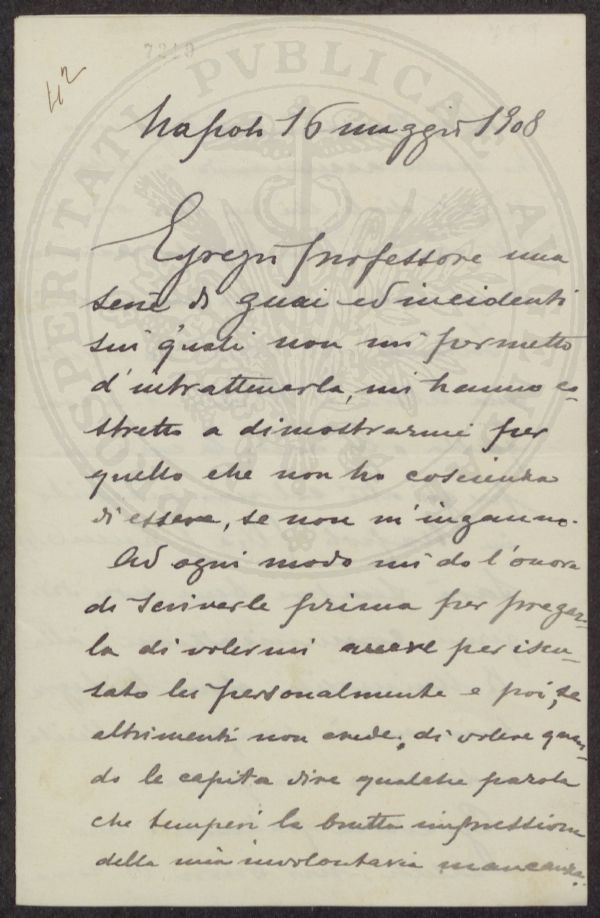 42
7219
Napoli 16 maggio 1908
Egregio professore una
serie di guai ed incidenti
sui quali non mi permetto
d'intrattenerla, mi hanno co-
stretto a dimostrarmi per
quello che non ho coscienza
di essere, se non m'inganno.
Ad ogni modo mi do l'onore
di scriverle prima per pregar-
la di volermi avere per iscu-
sato lei personalmente e poi, se
altrimenti non crede, di volere quan-
do le capita dire qualche parola
che temperi la brutta impressione
della mia involontaria mancanza.
PROSPERITATI PVBLICAE AVGENDAE